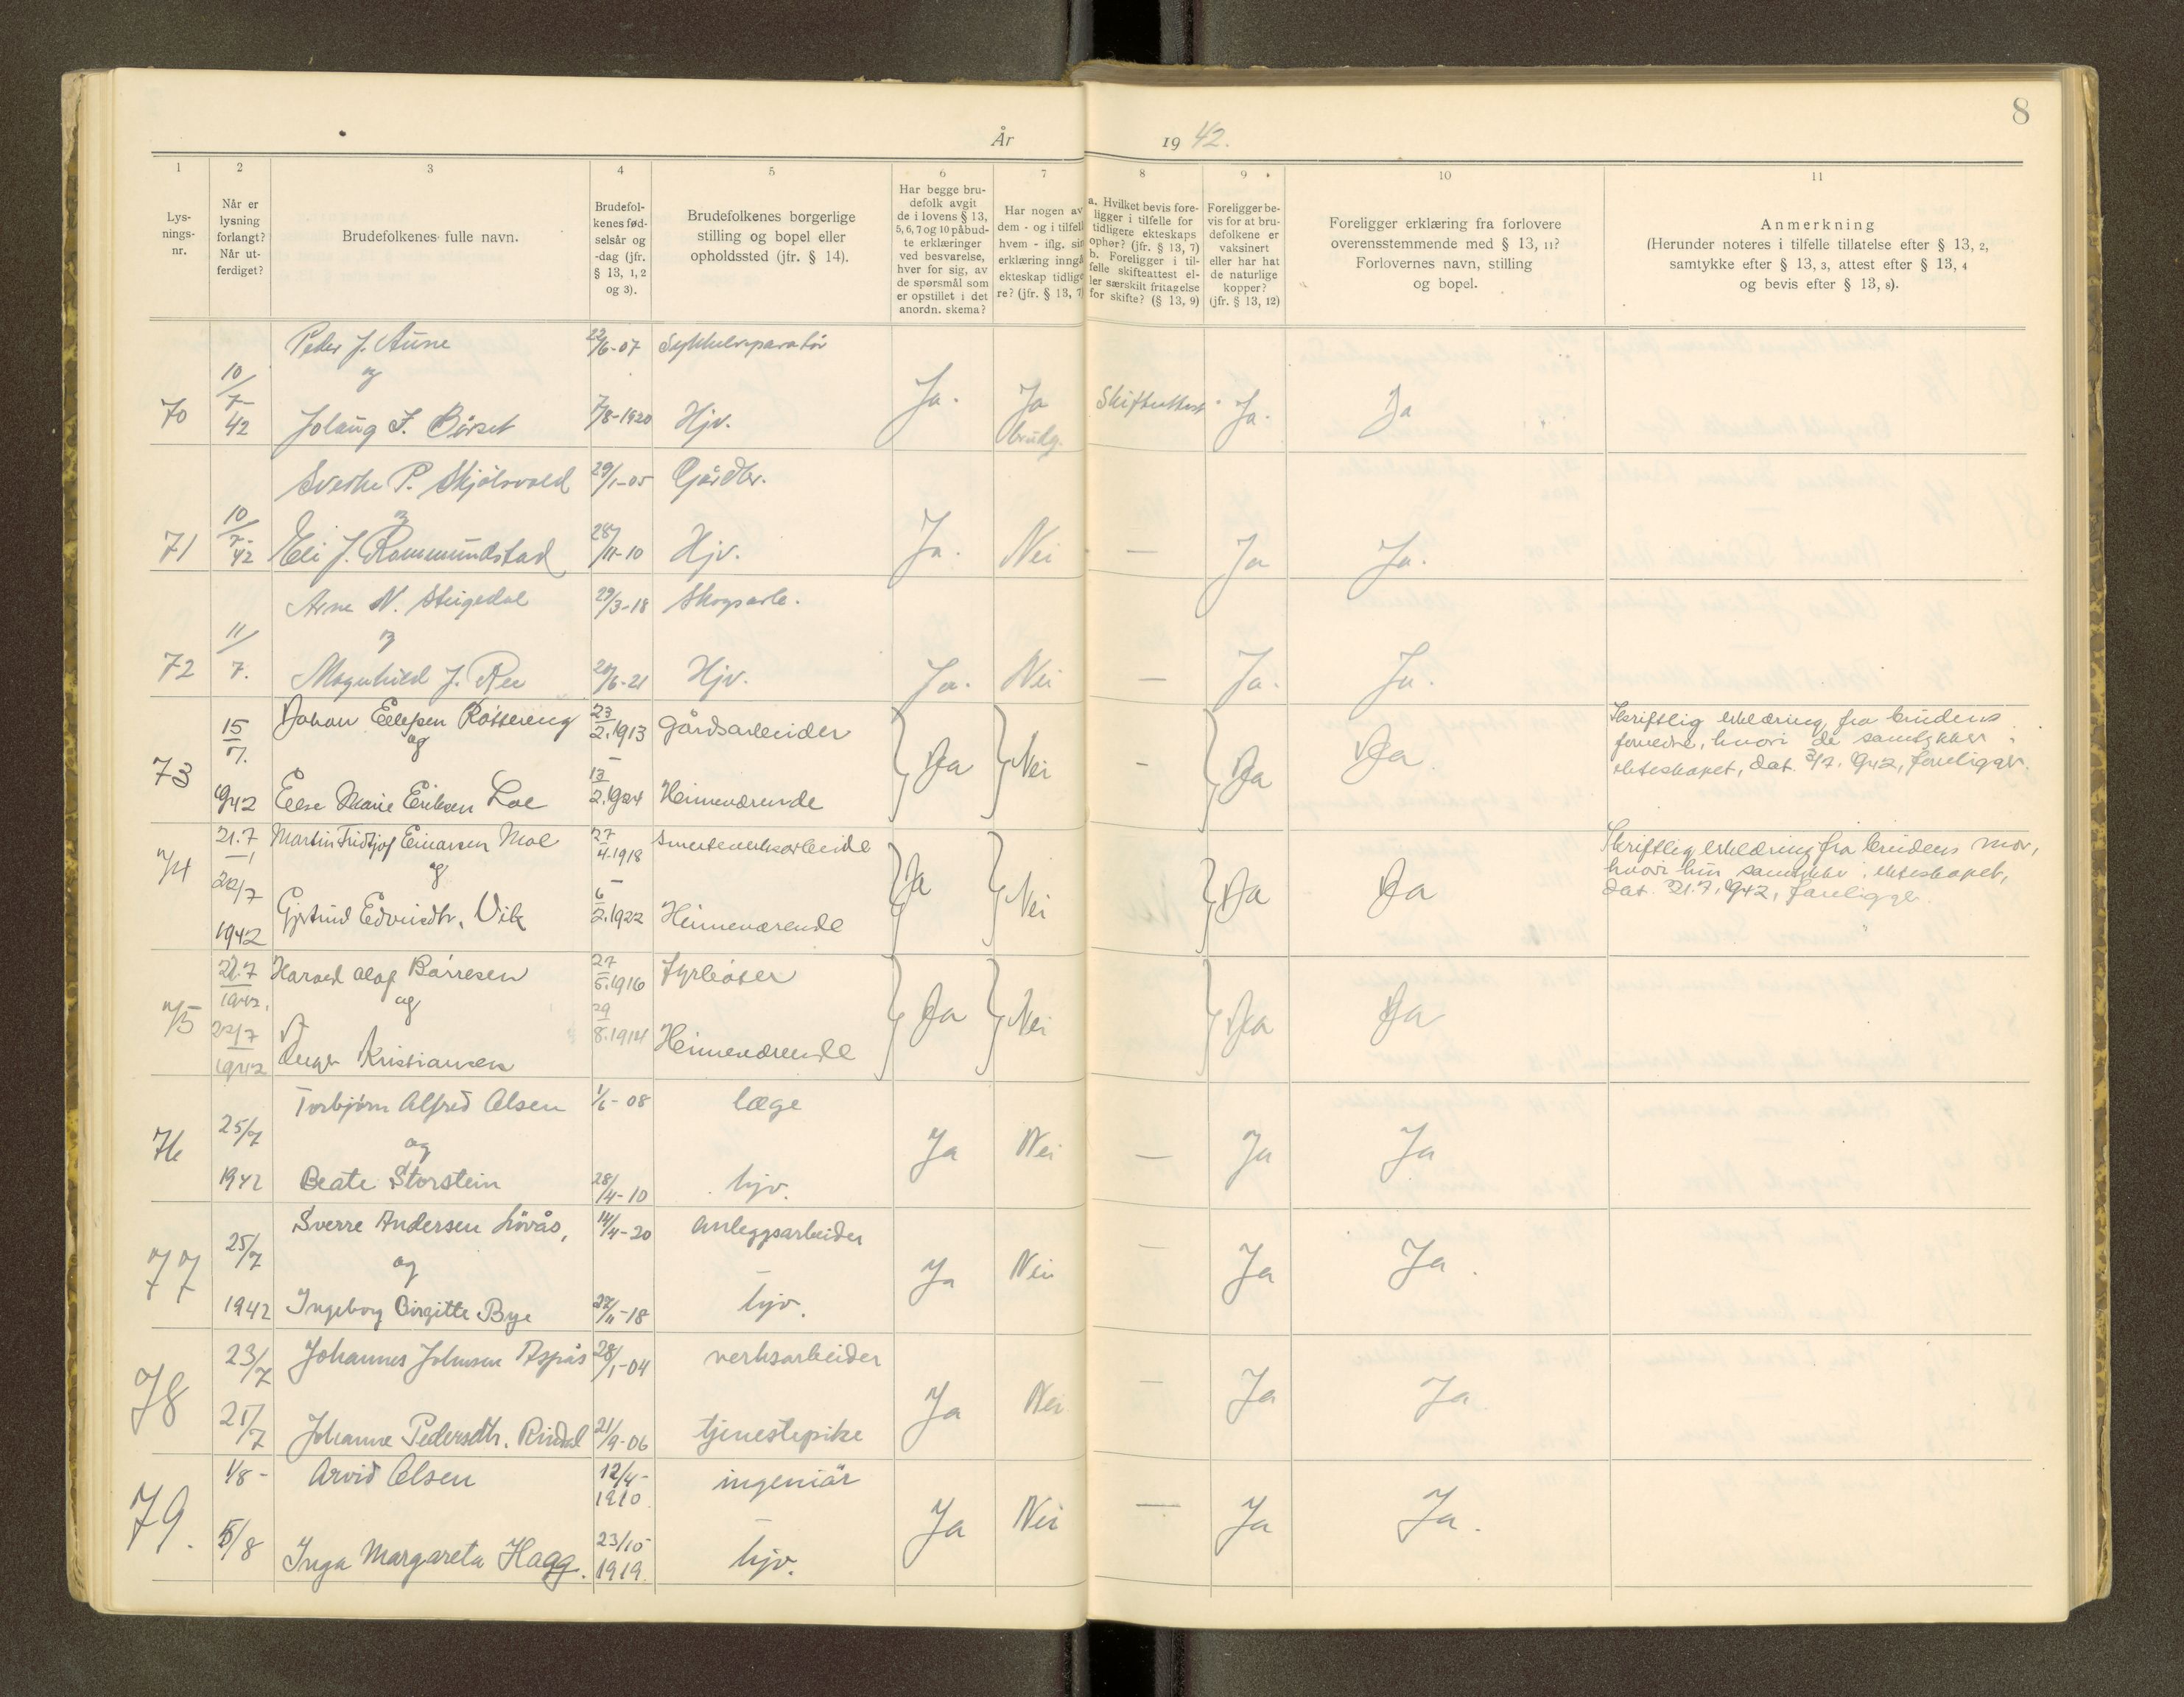 8
År 1942.
1 2 3 4 5 6 7 8 9 10 11
Lys-
nings-
nr.
Når er
lysning
forlangt?
Når ut-
ferdiget?
Brudefolkenes fulle navn.
Brudefol-
kenes fød-
selsår og
-dag (jfr.
§ 13, 1, 2
og 3).
Brudefolkenes borgerlige
stilling og bopel eller
opholdssted (jfr. § 14).
Har begge bru-
defolk avgit
de i lovens § 13,
5, 6, 7 og 10 påbud-
te erklæringer
ved besvarelse,
hver for sig, av
de spørsmål som
er opstillet i det
anordn. skema?
Har nogen av
dem - og i tilfell
hvem - iflg. sin
erklæring inngå
ekteskap tidlige
re? (jfr. § 13, 7)
a. Hvilket bevis fore-
ligger i tilfelle for
tidligere ekteskaps
ophør? (jfr. § 13, 7)
b. Foreligger i til-
felle skifteattest el-
ler særskilt fritagelse
for skifte? (§ 13, 9)
Foreligger be-
vis for at bru-
defolkene er
vaksinert
eller har hat
de naturlige
kopper?
(jfr. § 13, 12)
Foreligger erklæring fra forlovere
overensstemmende med § 13, 11?
Forlovernes navn, stilling
og bopel.
Anmerkning
(Herunder noteres i tilfelle tillatelse efter § 13, 2,
samtykke efter § 13, 3, attest efter § 13, 4
og bevis efter § 13, 8).
Peder J. Aune 22/6-07 Sykkelreparatør
og
70 10/7-42 Jolaug F. Børset 7/8-1920 Hjv. Ja. Ja brudg. Skifteattest Ja. Ja
Sverke P. Skjølsvold 29/1-05 Gårdbr.
og
71 10/7-42 Eli J. Rommundstad 28/11-10 Hjv. Ja. Nei — Ja Ja.
Arne N. Stuigedal 29/3-18 Skogsarb.
og
72 11/7. Magnhild J. Ree 20/6-21 Hjv. Ja. Nei — Ja. Ja.
Johan Ellefsen Røttereng 23/2.1913 Gårdsarbeider
og
73 15/7. 1942 Else Marie Eriksen Loe 13/2.1924 Heimeværende Ja Nei - Ja Ja
Skriftlig erklæring fra brudens
foreldre, hvori de samtykker i
ekteskapet, dat. 3/7. 1942, foreligger.
21.7 Martin Fridtjof Einarsen Moe 27/4.1918 Smelteverksarbeide
og
74 22/7 1942 Gjertrud Edvindtr. Vik 6/2.1922 Heimeværende Ja Nei Ja Ja
Skriftlig erklæring fra brudens mor,
hvori hun samtykker i ekteskapet,
dat. 21.7.1942, foreligger.
21.7 1942. Harald Olaf Børresen 27/5.1916 Fyrbøter
og
75 22/7 1942 Inger Kristiansen 29/8.1914 Heimeværende Ja Nei Ja Ja
Torbjørn Alfred Olsen 1/6-08 læge
og
76 25/7 1942 Beate Storstein 28/4-10 hjv. Ja Nei — Ja Ja
Sverre Andersen Løvås, 14/4-20 anleggsarbeider
og
77 25/7 1942 Ingeborg Birgitte Bye 27/11-18 hjv. Ja Nei — Ja Ja.
23/7 Johannes Johnsen Aspås 28/1-04 verksarbeider
78 25/7 Johanne Pedersdtr. Rindal 21/9-06 tjenestepike Ja Nei — Ja Ja.
1/8- Arvid Olsen 12/4-1910. ingeniør
79. 5/8 Inga Margareta Hagg. 23/10 1919. hjv. Ja Nei — Ja Ja.